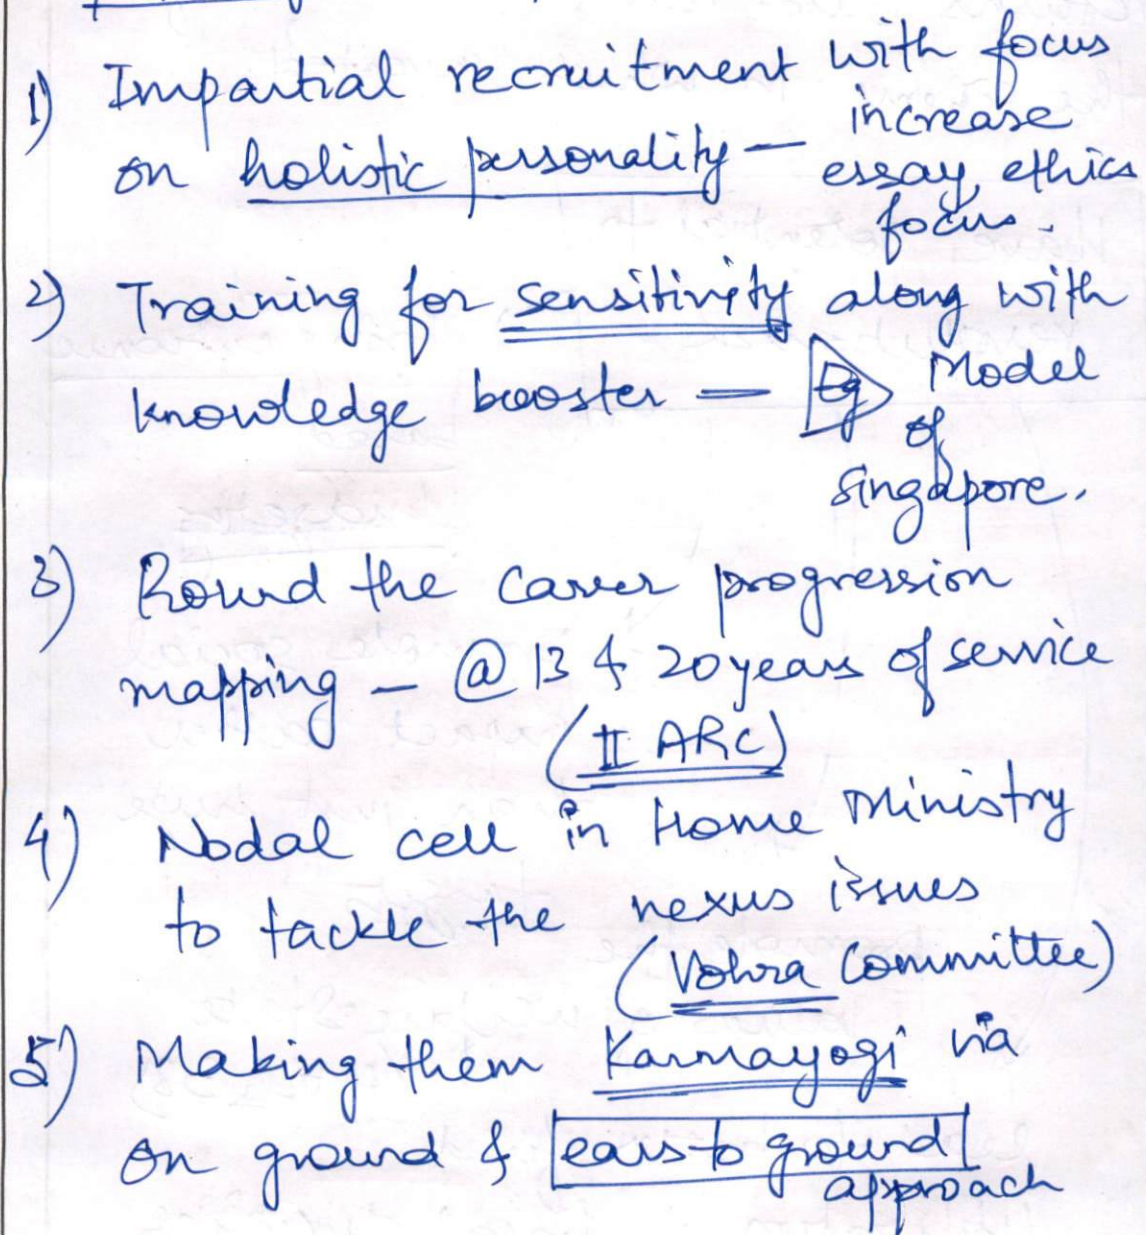 1) Impartial recruitment with focus
on holistic personality — increase
essay, ethics
focus.
2) Training for sensitivity along with
knowledge booster — Eg Model
of
Singapore.
3) Round the career progression
mapping – @ 13 & 20 years of service
(II ARC)
4) Nodal cell in Home Ministry
to tackle the nexus issues
(Vohra Committee)
5) Making them Karmayogi via
on ground & ears to ground
approach